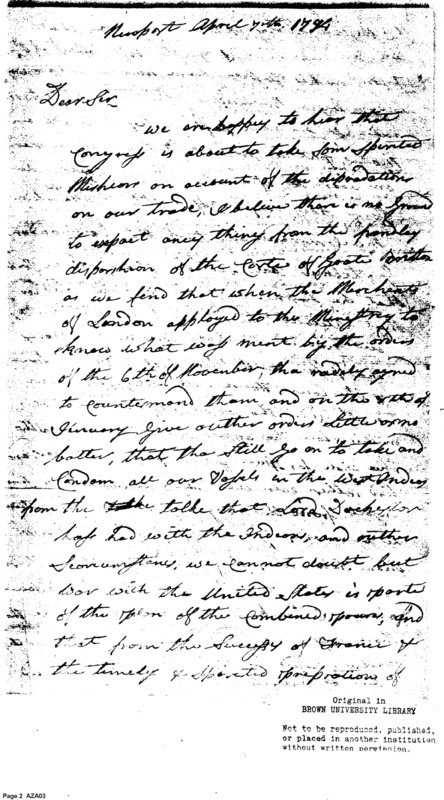 Newport April 7th. 1794
Dear Sir
we are happy to hear that
Congress is about to take som Spirited
Mishiors on account of the dipradations
on our trade, I believe thar is no ground
to expect aney thing from the frendley
disposhion of the Corte of Great Britton
as we find that when the Merchants
of London applyed to the Minystry to
know what was ment by the orders
of the 6th. of November, tha readely agred
to countermand tham, and on the 8th of
Jinuary Give outher orders little or no
batter, that tha still go on to take and
Condam all our Vessels in the West Indies
from the talke that Lord Dorchester
hass had with the Indians, and outher
Sircumstances, we cannot doubt but
War with the United States is parte
of the plan of the Combined powrs, and
that from the Success of France &
the timely & Spirited prepration of
Original in
BROWN UNIVERSITY LIBRARY
Not to be reproduced, published,
or placed in another institution
without written permission.
Page 2 AZA03